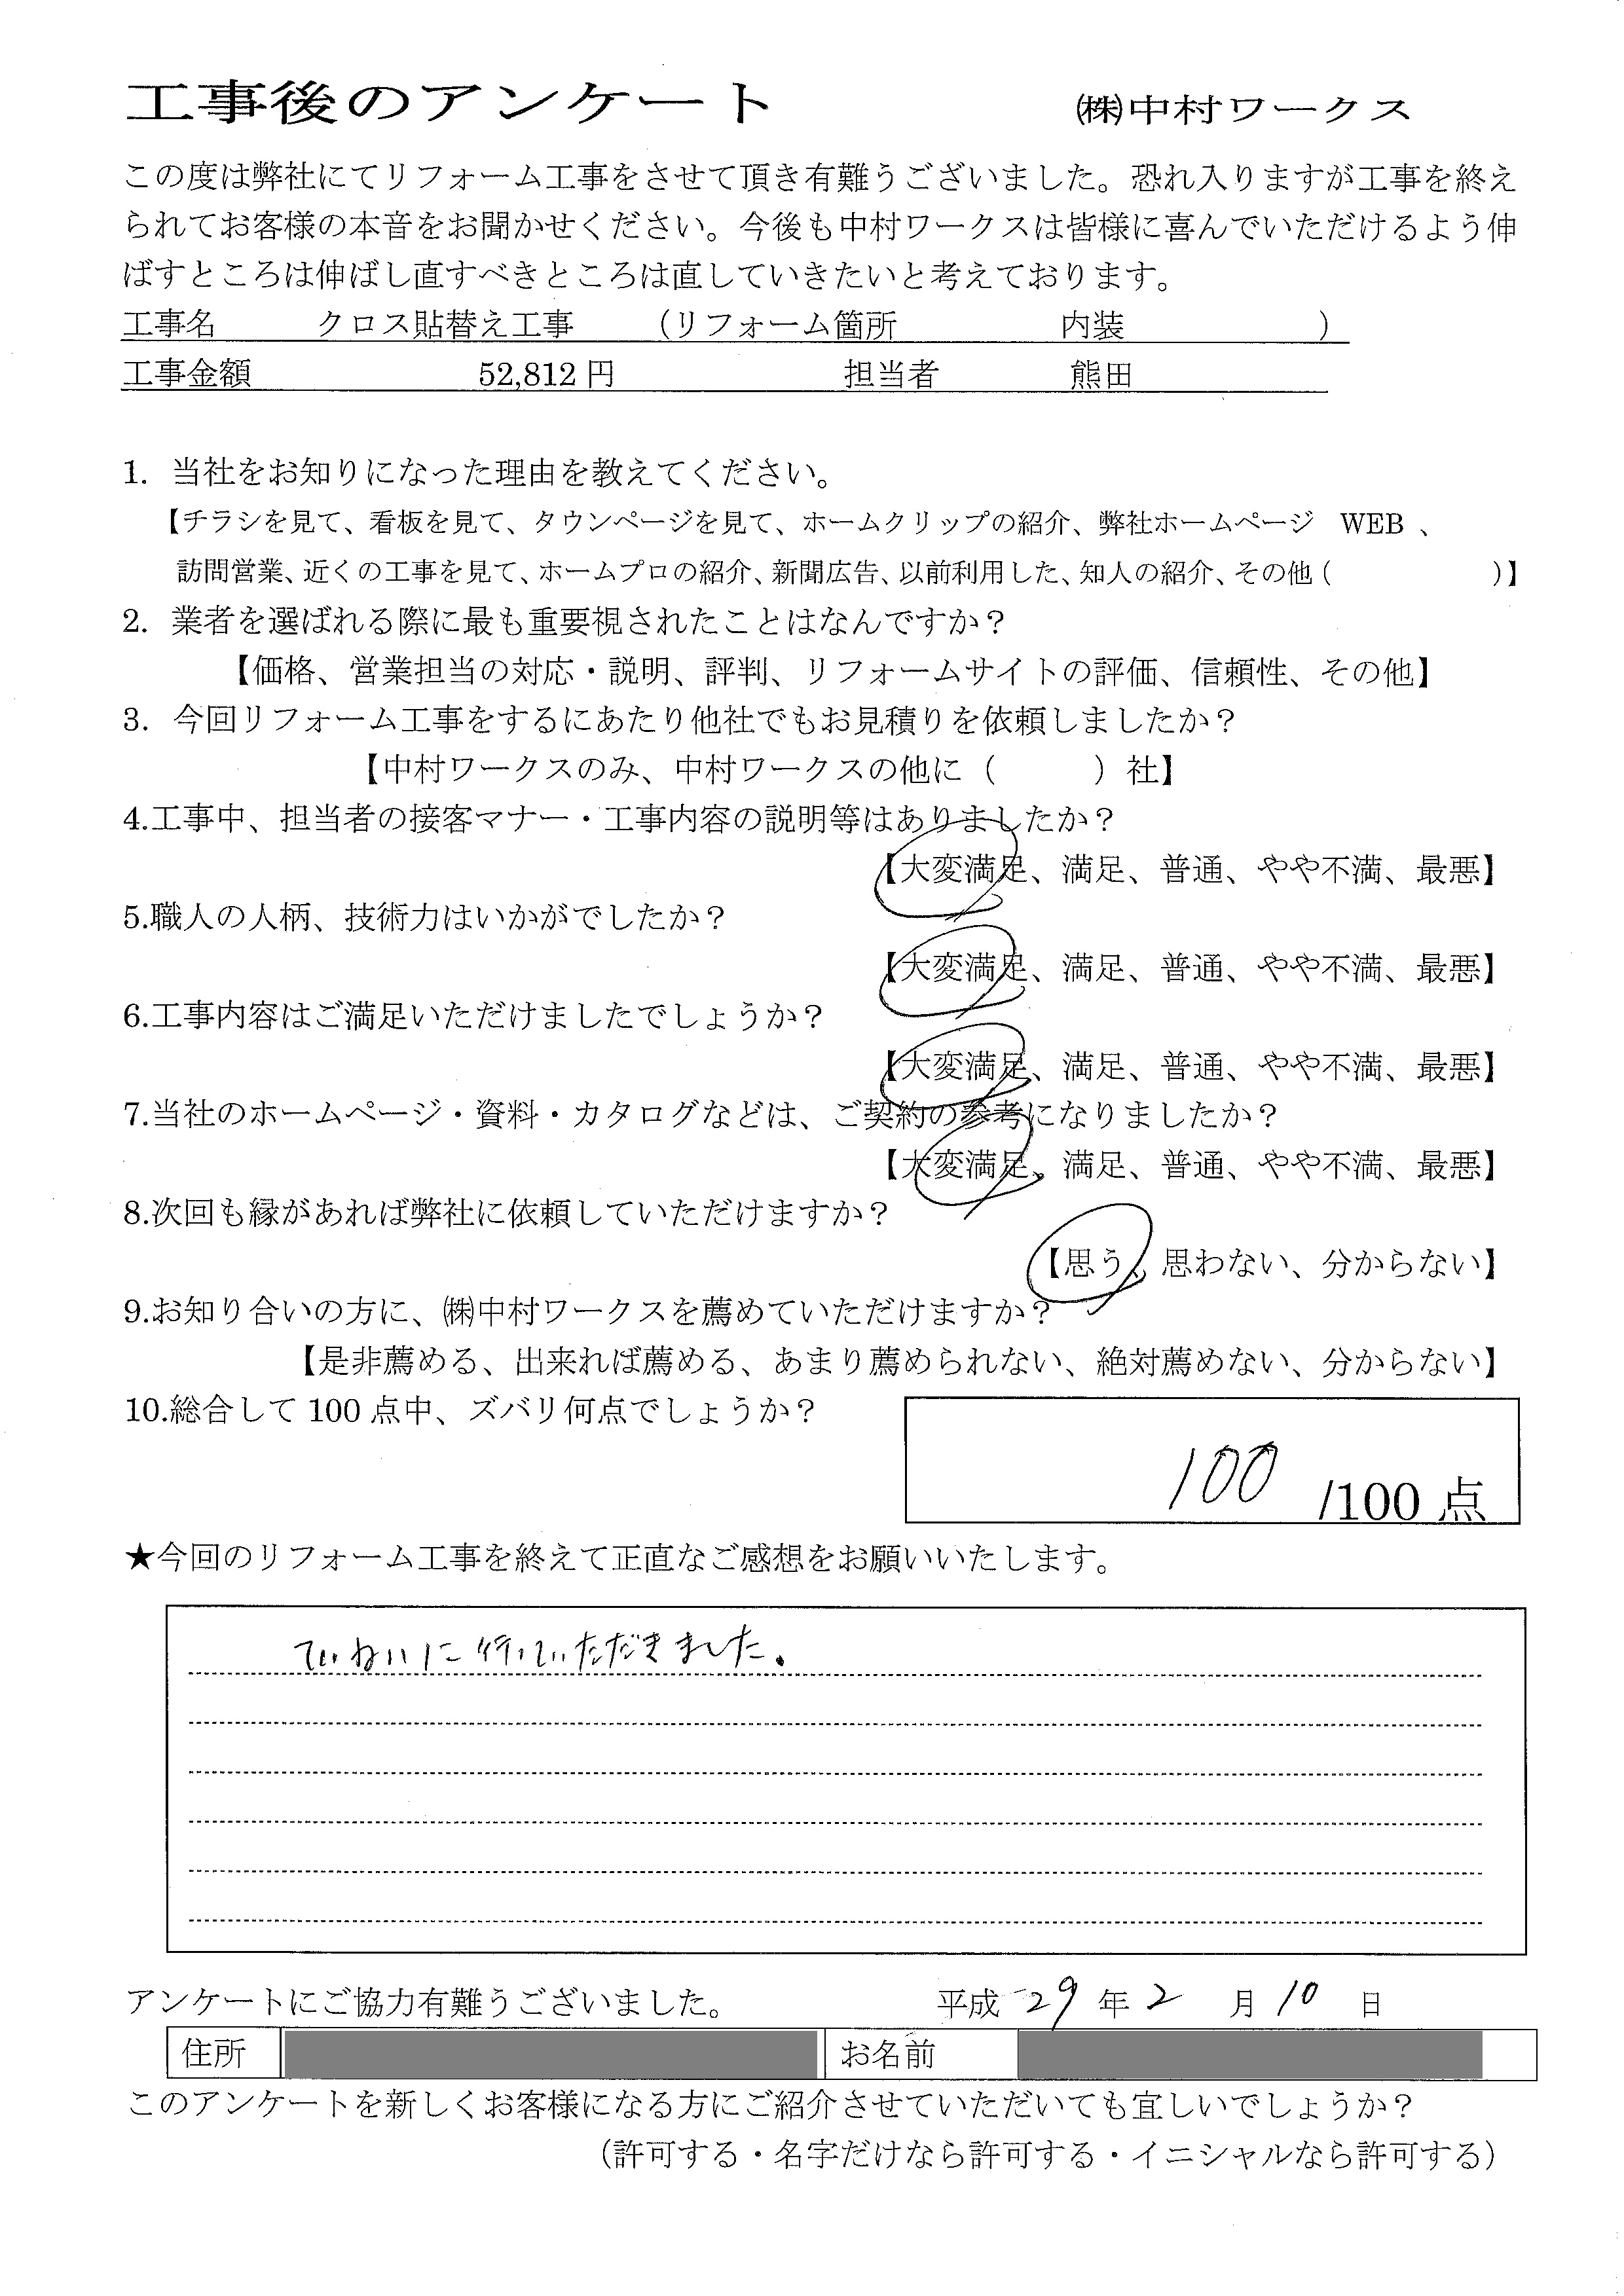 工事後のアンケート ㈱中村ワークス
この度は弊社にてリフォーム工事をさせて頂き有難うございました。恐れ入りますが工事を終え
られてお客様の本音をお聞かせください。今後も中村ワークスは皆様に喜んでいただけるよう伸
ばすところは伸ばし直すべきところは直していきたいと考えております。
工事名 クロス貼替え工事 (リフォーム箇所 内装 )
工事金額 52,812 円 担当者 熊田
1. 当社をお知りになった理由を教えてください。
【チラシを見て、看板を見て、タウンページを見て、ホームクリップの紹介、弊社ホームページ WEB 、
訪問営業、近くの工事を見て、ホームプロの紹介、新聞広告、以前利用した、知人の紹介、その他 ( )】
2. 業者を選ばれる際に最も重要視されたことはなんですか？
【価格、営業担当の対応・説明、評判、リフォームサイトの評価、信頼性、その他】
3. 今回リフォーム工事をするにあたり他社でもお見積りを依頼しましたか？
【中村ワークスのみ、中村ワークスの他に（ ）社】
4.工事中、担当者の接客マナー・工事内容の説明等はありましたか？
【大変満足、満足、普通、やや不満、最悪】
5.職人の人柄、技術力はいかがでしたか？
【大変満足、満足、普通、やや不満、最悪】
6.工事内容はご満足いただけましたでしょうか？
【大変満足、満足、普通、やや不満、最悪】
7.当社のホームページ・資料・カタログなどは、ご契約の参考になりましたか？
【大変満足、満足、普通、やや不満、最悪】
8.次回も縁があれば弊社に依頼していただけますか？
【思う、思わない、分からない】
9.お知り合いの方に、㈱中村ワークスを薦めていただけますか？
【是非薦める、出来れば薦める、あまり薦められない、絶対薦めない、分からない】
10.総合して 100 点中、ズバリ何点でしょうか？
100 /100 点
★今回のリフォーム工事を終えて正直なご感想をお願いいたします。
ていねいに行っていただきました。
アンケートにご協力有難うございました。 平成 29 年 2 月 10 日
住所 お名前
このアンケートを新しくお客様になる方にご紹介させていただいても宜しいでしょうか？
（許可する・名字だけなら許可する・イニシャルなら許可する）